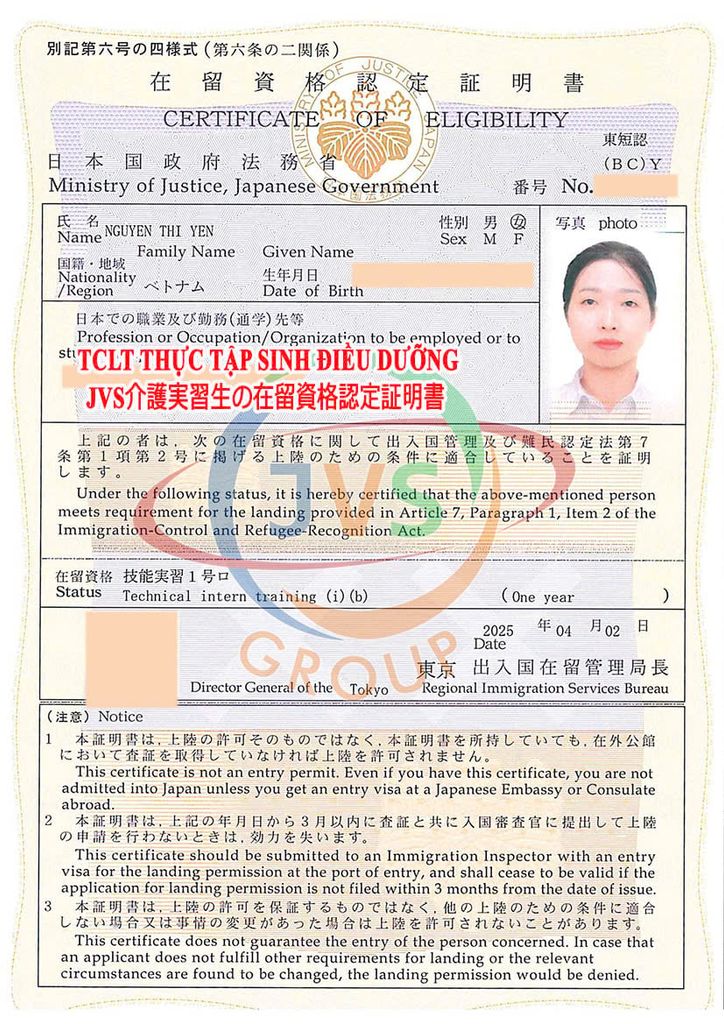 別記第六号の四様式 (第六条の二関係)
在留資格認定証明書
CERTIFICATE OF ELIGIBILITY
MINISTRY OF JUSTICE, JAPAN
東短認
日本国政府法務省
(BC)Y
Ministry of Justice, Japanese Government
番号 No.
氏名
Name NGUYEN THI YEN
Family Name Given Name
性別 男 女
Sex M F
写真 photo
国籍・地域
Nationality
/Region ベトナム
生年月日
Date of Birth
日本での職業及び勤務(通学)先等
Profession or Occupation/Organization to be employed or to
TCLT THỰC TẬP SINH ĐIỀU DƯỠNG
JVS介護実習生の在留資格認定証明書
上記の者は,次の在留資格に関して出入国管理及び難民認定法第7
条第1項第2号に掲げる上陸のための条件に適合していることを証明
します。
Under the following status, it is hereby certified that the above-mentioned person
meets requirement for the landing provided in Article 7, Paragraph 1, Item 2 of the
Immigration-Control and Refugee-Recognition Act.
JVS
GROUP
在留資格 技能実習1号ロ
Status Technical intern training (i)(b) (One year )
2025 年 04 月 02 日
Date
東京 出入国在留管理局長
Director General of the Tokyo Regional Immigration Services Bureau
(注意) Notice
1 本証明書は,上陸の許可そのものではなく,本証明書を所持していても,在外公館
において査証を取得していなければ上陸を許可されません。
This certificate is not an entry permit. Even if you have this certificate, you are not
admitted into Japan unless you get an entry visa at a Japanese Embassy or Consulate
abroad.
2 本証明書は,上記の年月日から3月以内に査証と共に入国審査官に提出して上陸
の申請を行わないときは,効力を失います。
This certificate should be submitted to an Immigration Inspector with an entry
visa for the landing permission at the port of entry, and shall cease to be valid if the
application for landing permission is not filed within 3 months from the date of issue.
3 本証明書は,上陸の許可を保証するものではなく,他の上陸のための条件に適合
しない場合又は事情の変更があった場合は上陸を許可されないことがあります。
This certificate does not guarantee the entry of the person concerned. In case that
an applicant does not fulfill other requirements for landing or the relevant
circumstances are found to be changed, the landing permission would be denied.